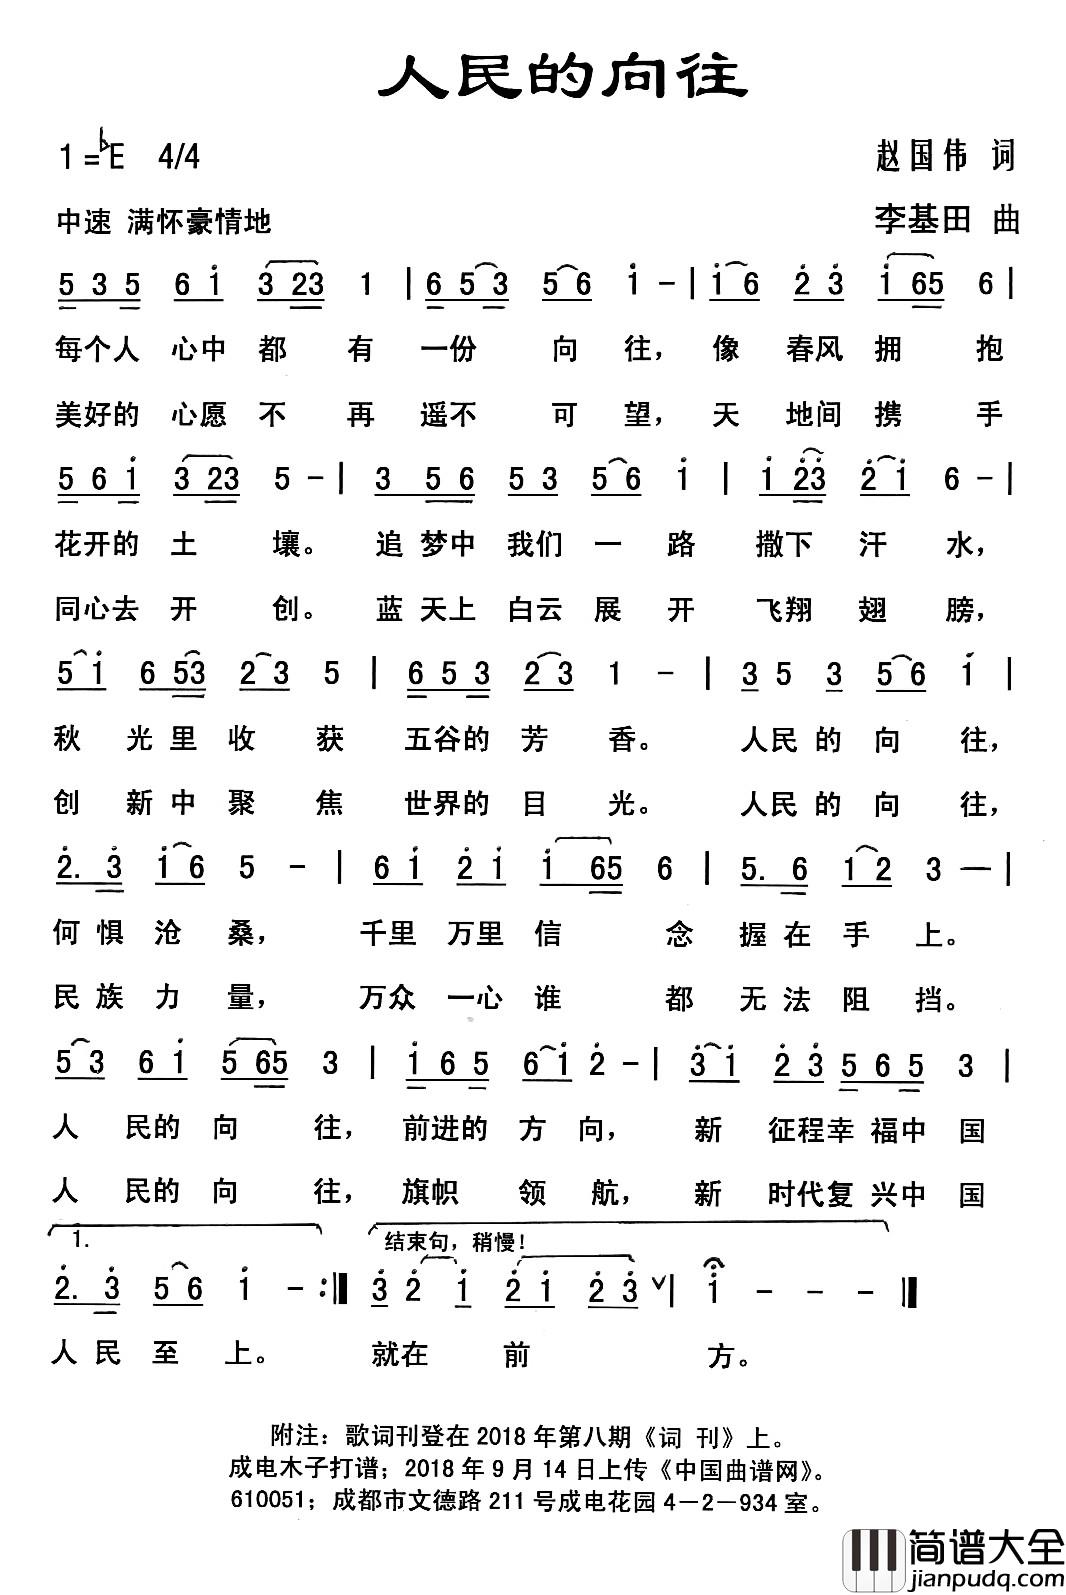 人民的向往
1=♭E 4/4 赵国伟 词
中速 满怀豪情地 李基田 曲
5 3 5 6 i 3 23 1 | 6 5 3 5 6 i - | i 6 2̇ 3̇ i 65 6 |
每个人 心中 都 有 一份 向 往， 像 春风 拥 抱
美好的 心愿 不 再 遥不 可 望， 天 地间 携 手
5 6 i 3 23 5 - | 3 5 6 5 3 5 6 i | i 2̇3̇ 2̇ i 6 - |
花开的 土 壤。 追 梦中 我们 一 路 撒下 汗 水，
同心去 开 创。 蓝 天上 白云 展 开 飞翔 翅 膀，
5 i 6 53 2 3 5 | 6 5 3 2 3 1 - | 3 5 3 5 6 i |
秋 光里 收 获 五谷的 芳 香。 人民 的 向 往，
创 新中 聚 焦 世界的 目 光。 人民 的 向 往，
2̇. 3̇ i 6 5 - | 6 i 2̇ i i 65 6 | 5. 6 1 2 3 — |
何 惧 沧 桑， 千里 万里 信 念 握 在 手 上。
民 族 力 量， 万众 一心 谁 都 无 法 阻 挡。
5 3 6 i 5 65 3 | i 6 5 6 i 2̇ - | 3̇ i 2̇ 3̇ 5 6 5 3 |
人 民的 向 往， 前进的 方 向， 新 征程 幸 福中 国
人 民的 向 往， 旗帜 领 航， 新 时代 复 兴中 国
1. 结束句，稍慢！
2̇. 3̇ 5 6 i - :‖ 3̇ 2̇ i 2̇ i 2̇ 3̇ ∨ | i - - - ‖
人 民 至 上。 就在 前 方。
附注：歌词刊登在 2018 年第八期《词 刊》上。
成电木子打谱；2018 年 9 月 14 日上传《中国曲谱网》。
610051；成都市文德路 211 号成电花园 4－2－934 室。
简谱大全
jianpudq.com